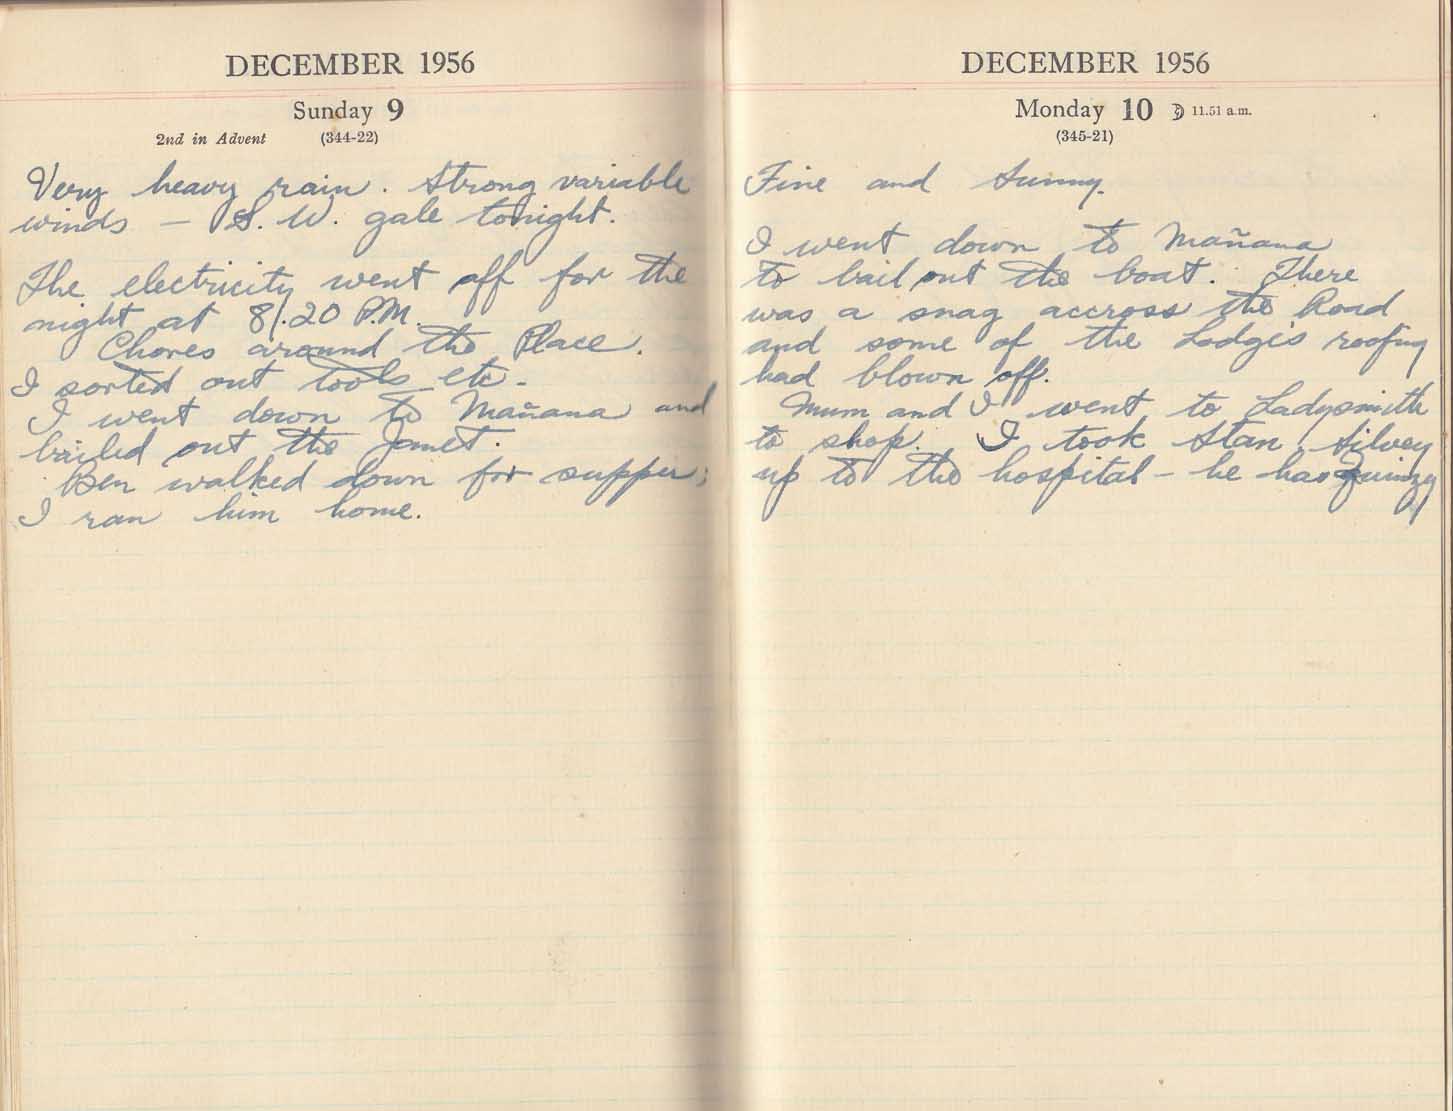 DECEMBER 1956
Sunday 9
2nd in Advent (344-22)
Very heavy rain. Strong variable
winds – S. W. gale tonight.
The electricity went off for the
night at 8.20 P.M.
Chores around the Place.
I sorted out tools etc.
I went down to Mañana and
bailed out the Janet.
Ben walked down for supper;
I ran him home.
DECEMBER 1956
Monday 10 11.51 a.m.
(345-21)
Fine and Sunny.
I went down to Mañana
to bail out the boat. There
was a snag accross the Road
and some of the Lodge's roofing
had blown off.
Mum and I went to Ladysmith
to shop. I took Stan Silvey
up to the hospital – he has Quinzy